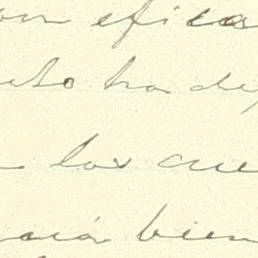 on efica
to ha de
los cue
ará bien